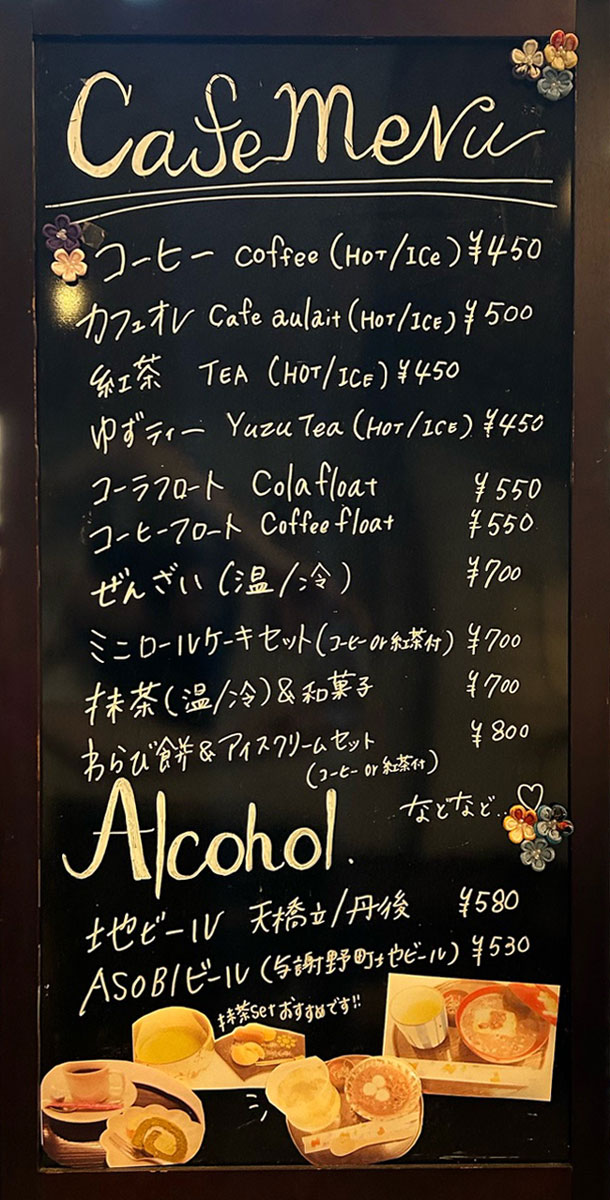 Cafe Menu
コーヒー coffee (HOT/ICE) ¥450
カフェオレ Cafe aulait (HOT/ICE) ¥500
紅茶 TEA (HOT/ICE) ¥450
ゆずティー Yuzu Tea (HOT/ICE) ¥450
コーラフロート Cola float ¥550
コーヒーフロート Coffee float ¥550
ぜんざい (温/冷) ¥700
ミニロールケーキセット (コーヒー or 紅茶付) ¥700
抹茶 (温/冷) & 和菓子 ¥700
わらび餅 & アイスクリームセット ¥800
(コーヒー or 紅茶付)
などなど..♡
Alcohol.
地ビール 天橋立/丹後 ¥580
ASOBIビール (与謝野町地ビール) ¥530
抹茶setおすすめです!!